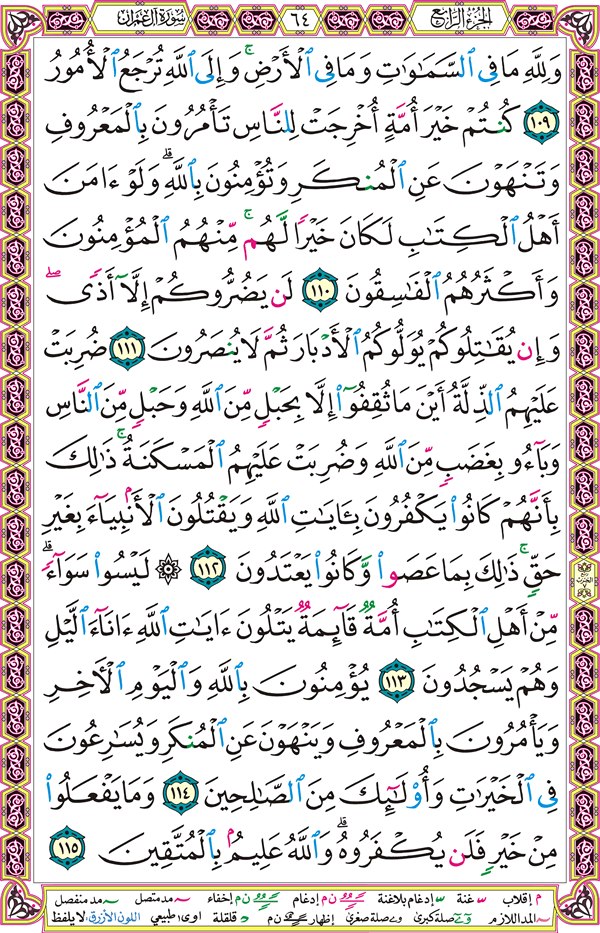 الجزء الرابع ٦٤ سورة آل عمران
وَلِلَّهِ مَا فِي ٱلسَّمَٰوَٰتِ وَمَا فِي ٱلْأَرْضِ ۚ وَإِلَى ٱللَّهِ تُرْجَعُ ٱلْأُمُورُ
١٠٩ كُنتُمْ خَيْرَ أُمَّةٍ أُخْرِجَتْ لِلنَّاسِ تَأْمُرُونَ بِٱلْمَعْرُوفِ
وَتَنْهَوْنَ عَنِ ٱلْمُنكَرِ وَتُؤْمِنُونَ بِٱللَّهِ ۗ وَلَوْ ءَامَنَ
أَهْلُ ٱلْكِتَٰبِ لَكَانَ خَيْرًا لَّهُم ۚ مِّنْهُمُ ٱلْمُؤْمِنُونَ
وَأَكْثَرُهُمُ ٱلْفَٰسِقُونَ ١١٠ لَن يَضُرُّوكُمْ إِلَّآ أَذًى ۖ
وَإِن يُقَٰتِلُوكُمْ يُوَلُّوكُمُ ٱلْأَدْبَارَ ثُمَّ لَا يُنصَرُونَ ١١١ ضُرِبَتْ
عَلَيْهِمُ ٱلذِّلَّةُ أَيْنَ مَا ثُقِفُوٓا۟ إِلَّا بِحَبْلٍ مِّنَ ٱللَّهِ وَحَبْلٍ مِّنَ ٱلنَّاسِ
وَبَآءُو بِغَضَبٍ مِّنَ ٱللَّهِ وَضُرِبَتْ عَلَيْهِمُ ٱلْمَسْكَنَةُ ۚ ذَٰلِكَ
بِأَنَّهُمْ كَانُوا۟ يَكْفُرُونَ بِـَٔايَٰتِ ٱللَّهِ وَيَقْتُلُونَ ٱلْأَنۢبِيَآءَ بِغَيْرِ
حَقٍّ ۚ ذَٰلِكَ بِمَا عَصَوا۟ وَّكَانُوا۟ يَعْتَدُونَ ١١٢ ۞ لَيْسُوا۟ سَوَآءً ۗ
مِّنْ أَهْلِ ٱلْكِتَٰبِ أُمَّةٌ قَآئِمَةٌ يَتْلُونَ ءَايَٰتِ ٱللَّهِ ءَانَآءَ ٱلَّيْلِ
وَهُمْ يَسْجُدُونَ ١١٣ يُؤْمِنُونَ بِٱللَّهِ وَٱلْيَوْمِ ٱلْءَاخِرِ
وَيَأْمُرُونَ بِٱلْمَعْرُوفِ وَيَنْهَوْنَ عَنِ ٱلْمُنكَرِ وَيُسَٰرِعُونَ
فِي ٱلْخَيْرَٰتِ وَأُو۟لَٰٓئِكَ مِنَ ٱلصَّٰلِحِينَ ١١٤ وَمَا يَفْعَلُوا۟
مِنْ خَيْرٍ فَلَن يُكْفَرُوهُ ۗ وَٱللَّهُ عَلِيمٌۢ بِٱلْمُتَّقِينَ ١١٥
م إقلاب غنة إدغام بلاغنة ن م إدغام ن م إخفاء مد متصل مد منفصل
المد اللازم صلة كبرى صلة صغرى إظهار ن م قلقلة اوى: طبيعي اللون الأزرق: لا يلفظ